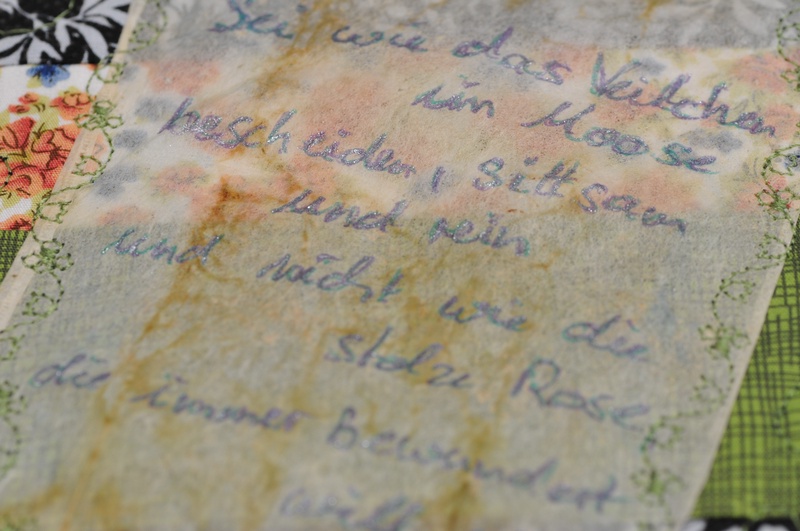 Sei wie das Veilchen
im Moose
bescheiden, sittsam
und rein
und nicht wie die
stolze Rose
die immer bewundert
will